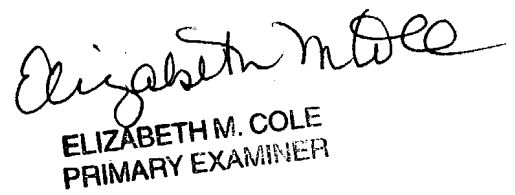 Elizabeth M Cole
ELIZABETH M. COLE
PRIMARY EXAMINER